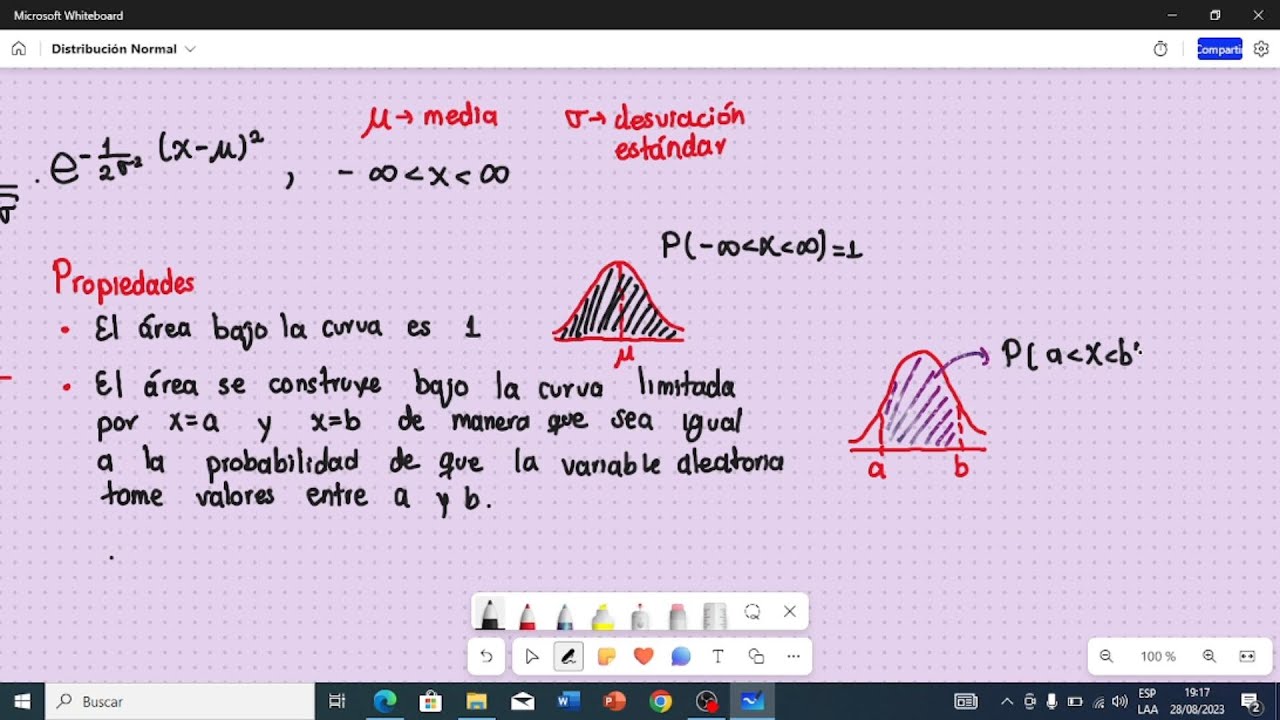 Microsoft Whiteboard
Distribución Normal
Compartir
μ→ media
σ→ desviación
estándar
. e^-1/2σ² (x-μ)² , -∞<x<∞
P(-∞<x<∞)=1
Propiedades
• El área bajo la curva es 1
μ
P( a<x<b
• El área se construye bajo la curva limitada
por x=a y x=b de manera que sea igual
a la probabilidad de que la variable aleatoria
tome valores entre a y b.
a b
.
100 %
Buscar
ESP
LAA
19:17
28/08/2023
2